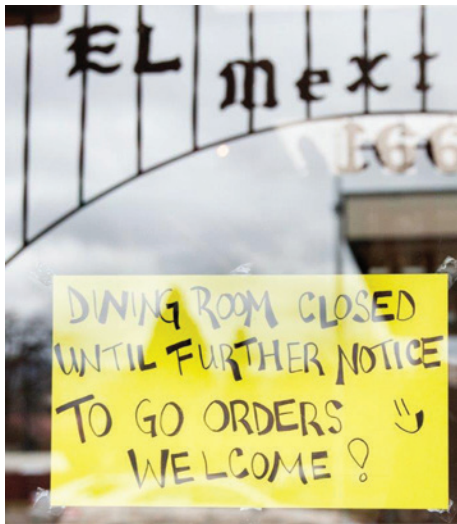 EL mexi
166
DINING ROOM CLOSED
UNTIL FURTHER NOTICE
TO GO ORDERS
WELCOME!